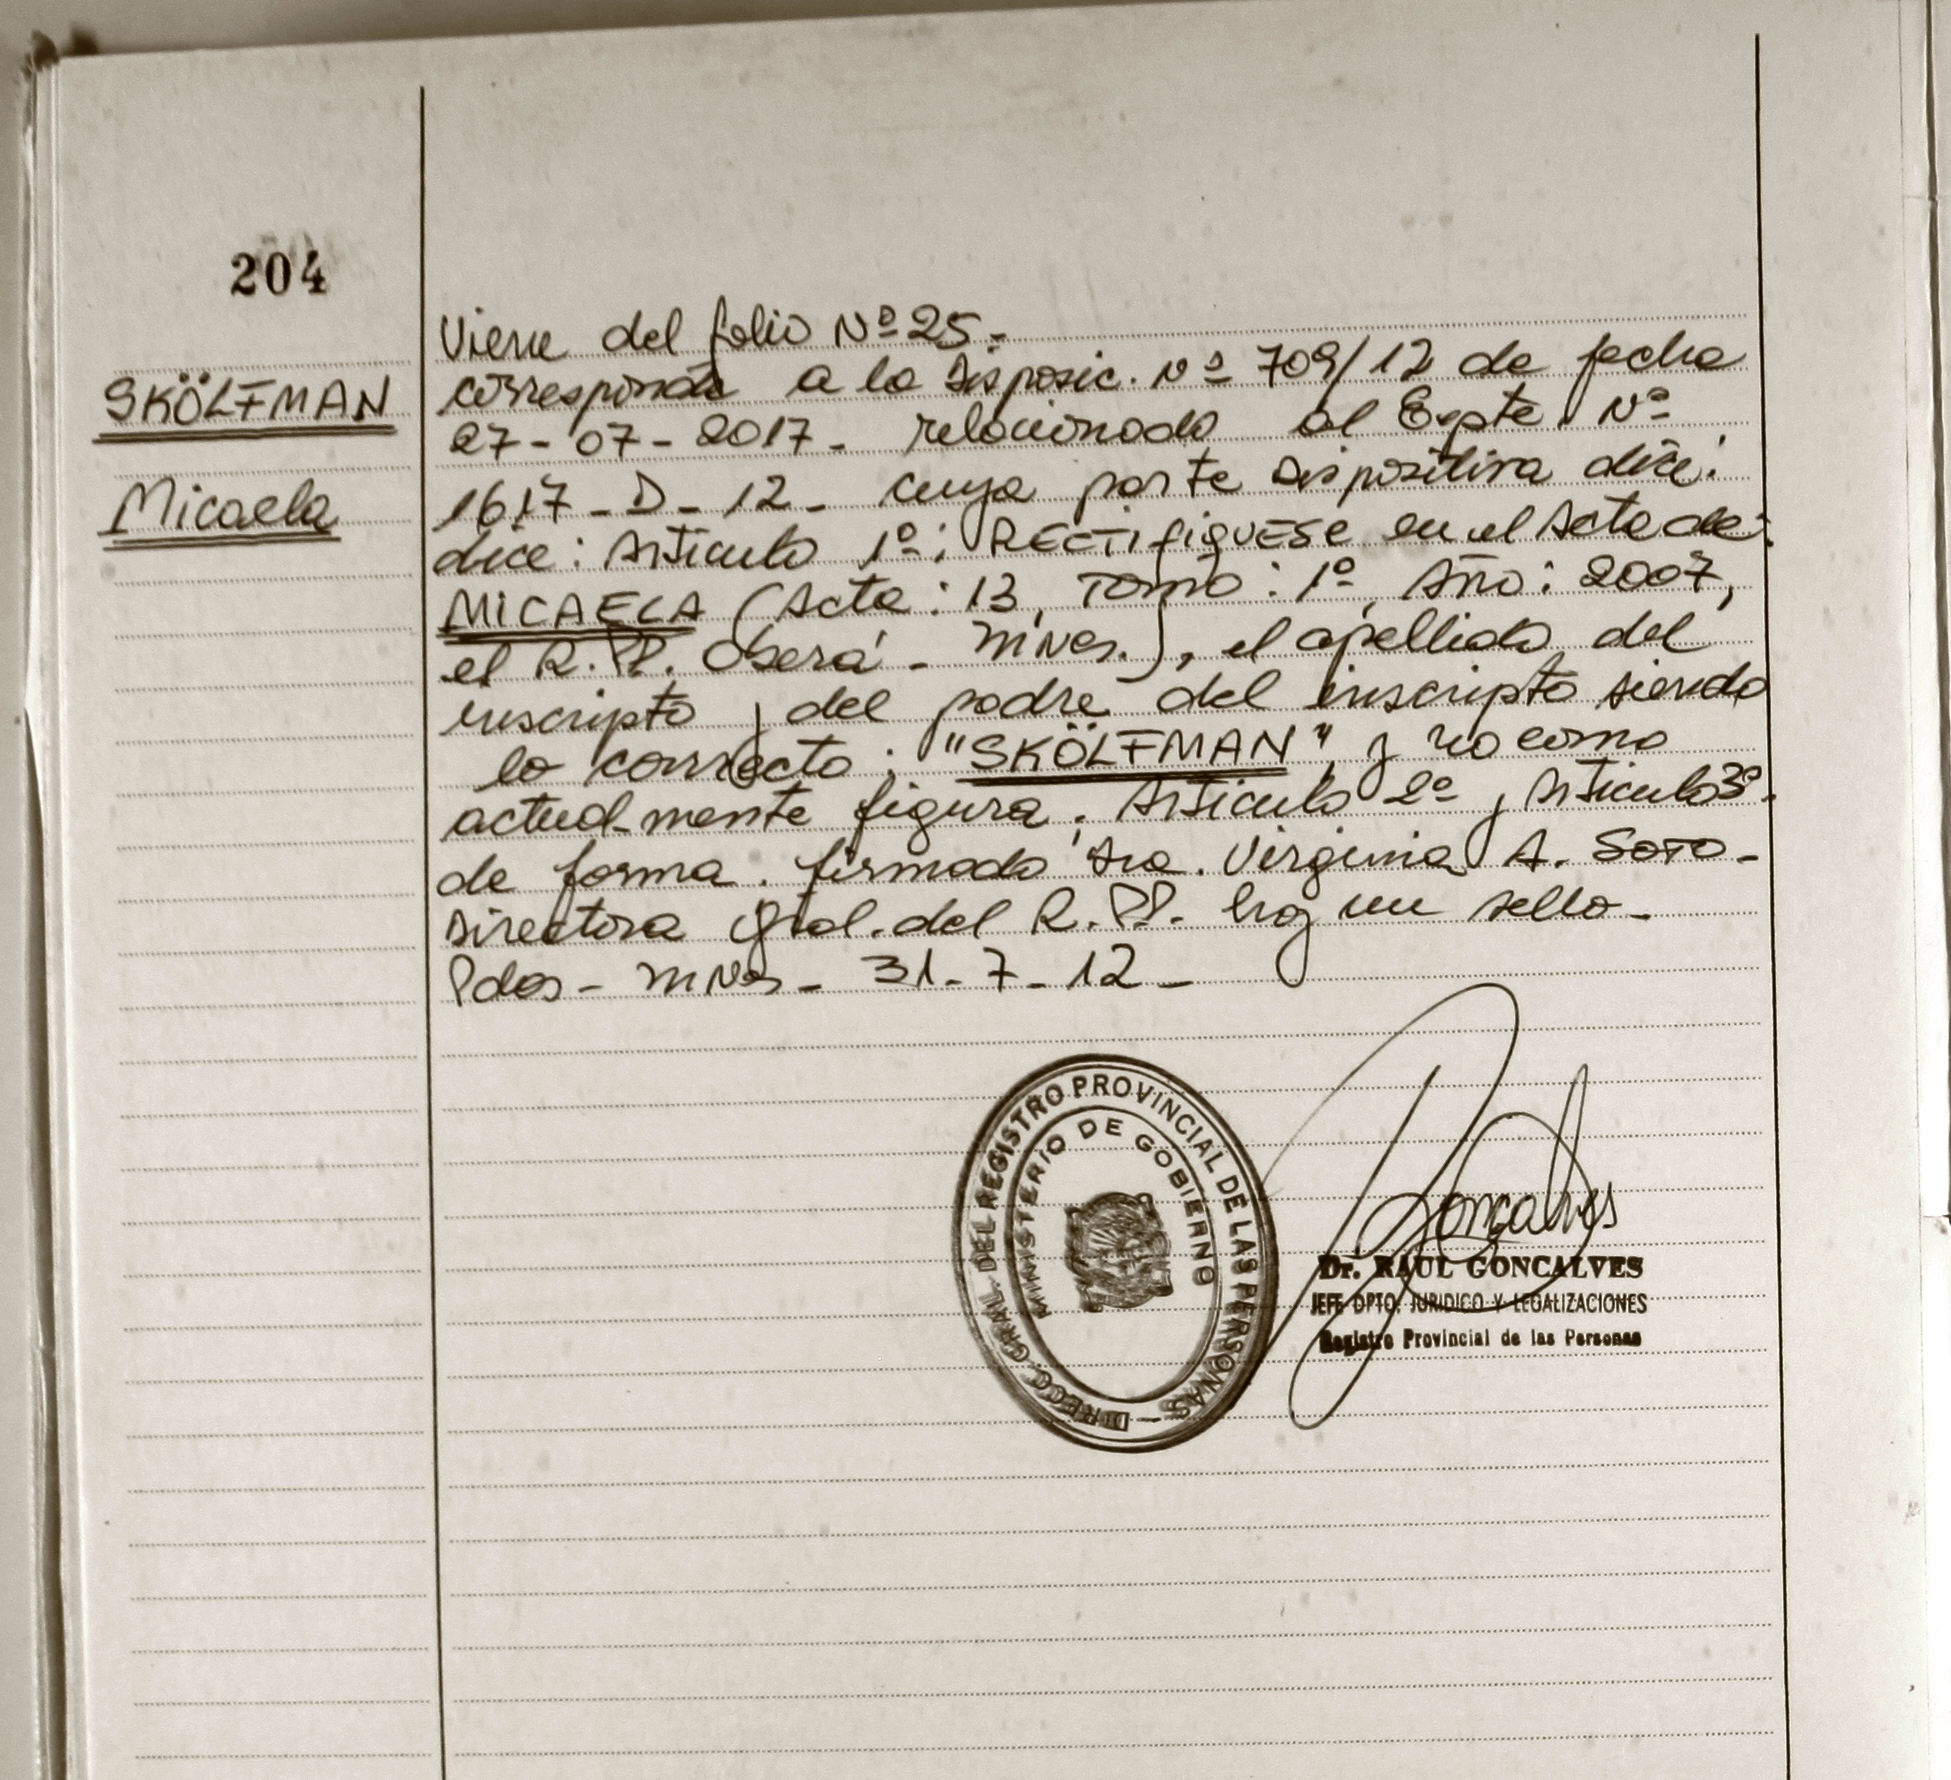 204
SKÖLFMAN
Micaela
Viene del folio Nº 25.-
corresponde a la Disposic. Nº 709/12 de fecha
27-07-2017- relacionado al Expte Nº
1617-D-12- cuya parte Dispositiva dice:
dice: Artículo 1º: RECTIFIQUESE en el Acta de:
MICAELA (Acta: 13, Tomo: 1º, Año: 2007,
el R.PP. Oberá - Mnes.), el apellido del
inscripto y del padre del inscripto siendo
lo correcto: "SKÖLFMAN" y no como
actualmente figura. Artículo 2º y Artículo 3º.
de forma. firmado Dra. Virginia A. Soto-
Directora Gral. del R.PP. hay un sello-
Pdas- Mnes- 31-7-12-
DIRECC. GRAL. DEL REGISTRO PROVINCIAL DE LAS PERSONAS -
MINISTERIO DE GOBIERNO
Goncalves
Dr. RAUL GONCALVES
JEFE DPTO. JURIDICO Y LEGALIZACIONES
Registro Provincial de las Personas